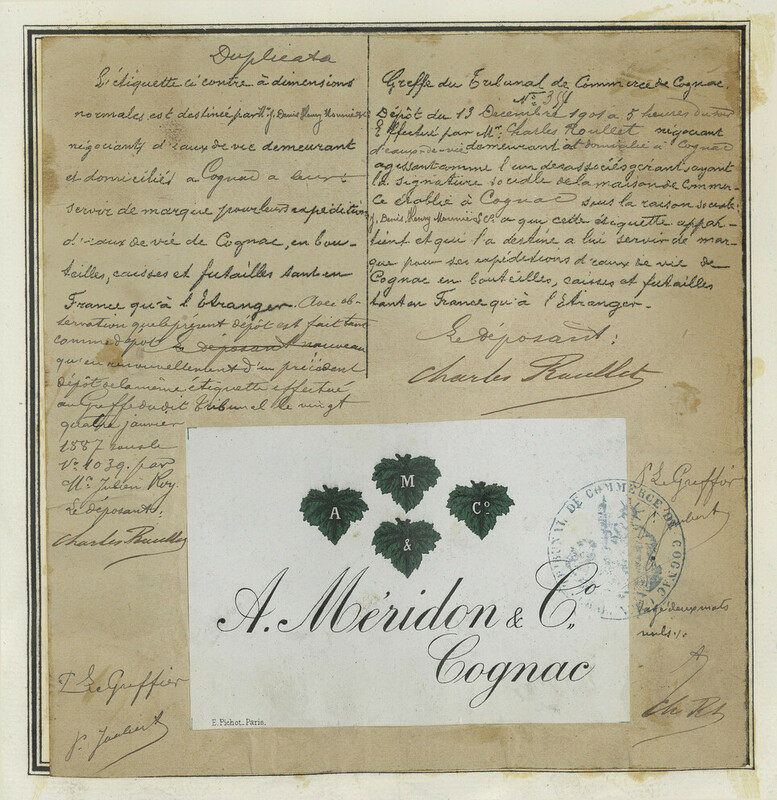 Duplicata
L'étiquette ci contre à dimensions
normales est destinée par Mrs J. Denis Henry Mounié & Co
négociants d'eaux de vie demeurant
et domiciliés à Cognac à leur
servir de marque pour leurs expéditions
d'eaux de vie de Cognac, en bou-
teilles, caisses et futailles tant en
France qu'à l'Etranger. Avec ob-
servation que le présent dépôt est fait tant
comme dépôt le déposant nouveau
qu'en renouvellement d'un précédent
dépôt de la même étiquette effectué
au Greffe du dit Tribunal le vingt
quatre janvier
1887 sous le
No 1039. par
Mr Julien Roy.
Le déposant:
Charles Roullet
P. Le Greffier
P. Joubert
Greffe du Tribunal de Commerce de Cognac.
No
Dépôt du 13 Décembre 1901 à 5 heures du soir
Effectué par Mr Charles Roullet négociant
d'eaux-de-vie demeurant et domicilié à Cognac
agissant comme l'un des associés gérants ayant
la signature sociale de la maison de Commer-
ce établie à Cognac sous la raison sociale:
J. Denis, Henry Mounié & Co a qui cette étiquette appar-
tient et qui l'a destine a lui servir de mar-
que pour ses expéditions d'eaux de vie de
Cognac en bouteilles, caisses et futailles
tant en France qu'à l'Etranger.
Le déposant:
Charles Roullet
P. Le Greffier
P. Joubert
Rayé deux mots
nuls ./.
Ch. R
A
M
Co
&
A. Méridon & Co.
Cognac
E. Pichot_Paris.
TRIBUNAL DE COMMERCE DE COGNAC